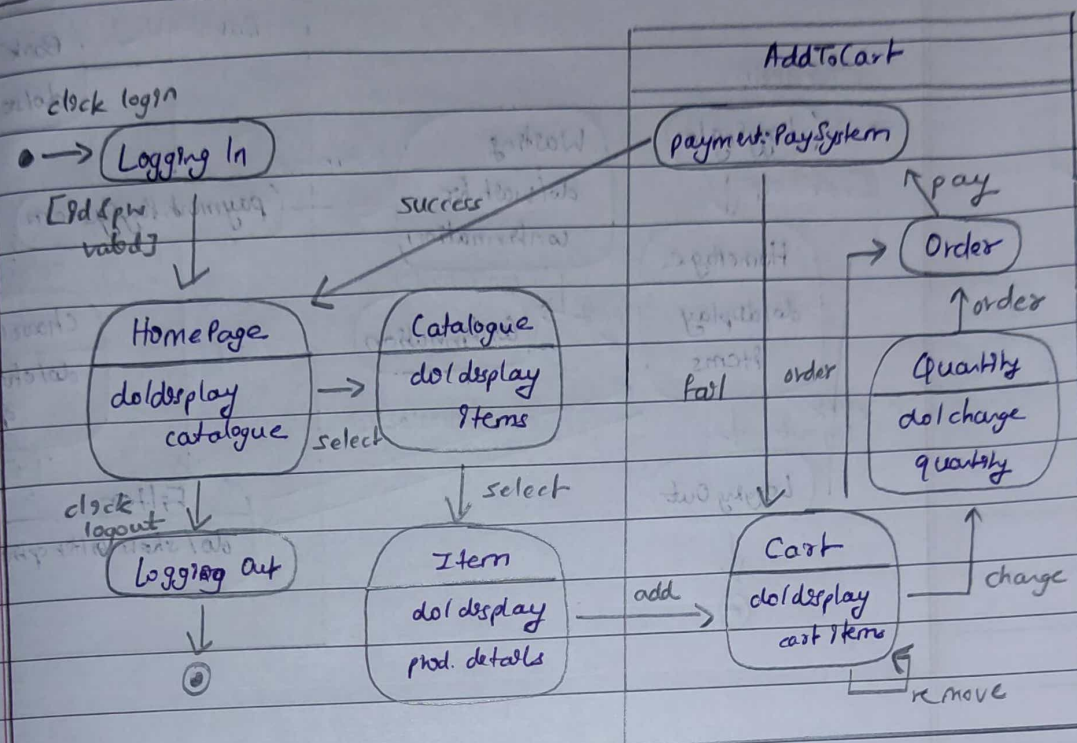 AddToCart
click login
Logging In
payment:PaySystem
[id&pw
valid]
success
pay
Order
HomePage
do/display
catalogue
select
Catalogue
do/display
items
fail
order
order
Quantity
do/change
quantity
click
logout
select
Logging Out
Item
do/display
prod. details
add
Cart
do/display
cart items
change
remove